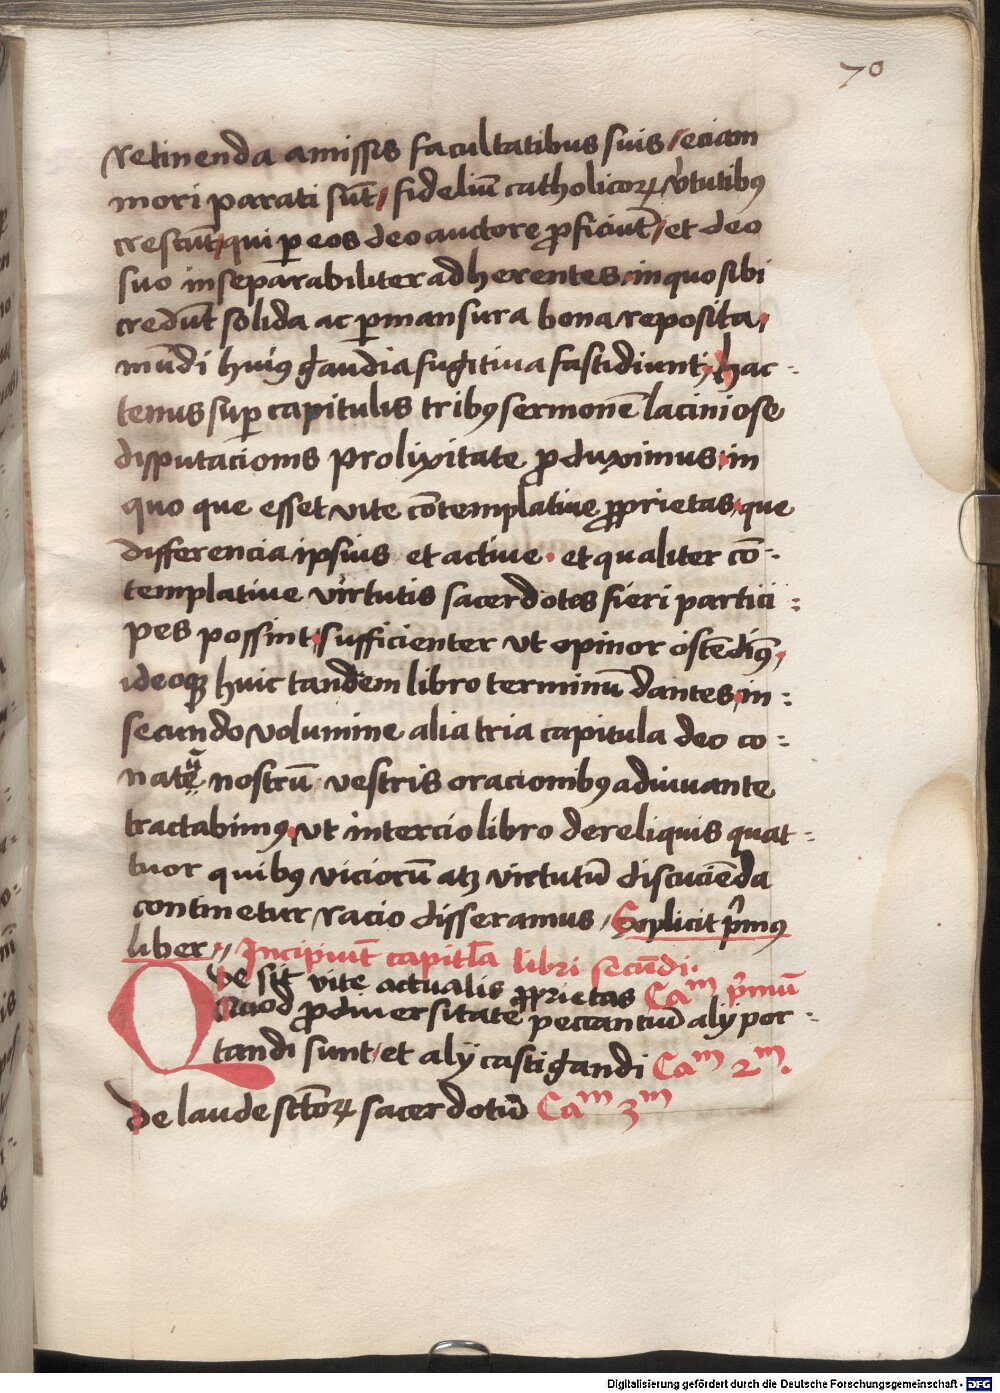 70
retinenda amissis facultatibus suis / eciam
mori parati sūt / fideliū catholicoꝝ v̓tutibꝰ
crescūt / qui ꝑ eos deo auctore ꝓficiūt / et deo
suo inseparabiliter adherentes · in quo sibi
credūt solida ac ꝑmansura bona reposita ·
mūdi huiꝰ gaudia fugitiua fastidiunt · hac -
tenus suꝑ capitulis tribꝰ sermonē laciniose
disputacionis prolixitate ꝓduximus · in
quo que esset vite cōtemplatiue ꝓprietas · que
differencia ipsius et actiue · et qualiter cō -
templatiue virtutis sacerdotes fieri partici :
pes possint · sufficienter vt opinor ostēdimꝰ ·
ideoqꝫ huic tandem libro terminū dantes · in :
secundo volumine alia tria capitula deo co :
natū nostrū vestris oracionibꝰ adiuuante
tractabimꝰ · vt in tercio libro de reliquis quat :
tuor quibꝰ viciorū atqꝫ virtutū discuciēda
continetur racio disseramus / Explicit p̓mus
liber // Incipiūt capitl̄a libri secūdi ·
Que sit vite actualis ꝓprietas Caᵐ p̓mū
Quod ꝓ diuersitate peccantiū alij por -
tandi sunt / et alij castigandi Caᵐ 2ᵐ ·
de laude sc̄toꝝ sacerdotū Caᵐ 3ᵐ
Digitalisierung gefördert durch die Deutsche Forschungsgemeinschaft - DFG